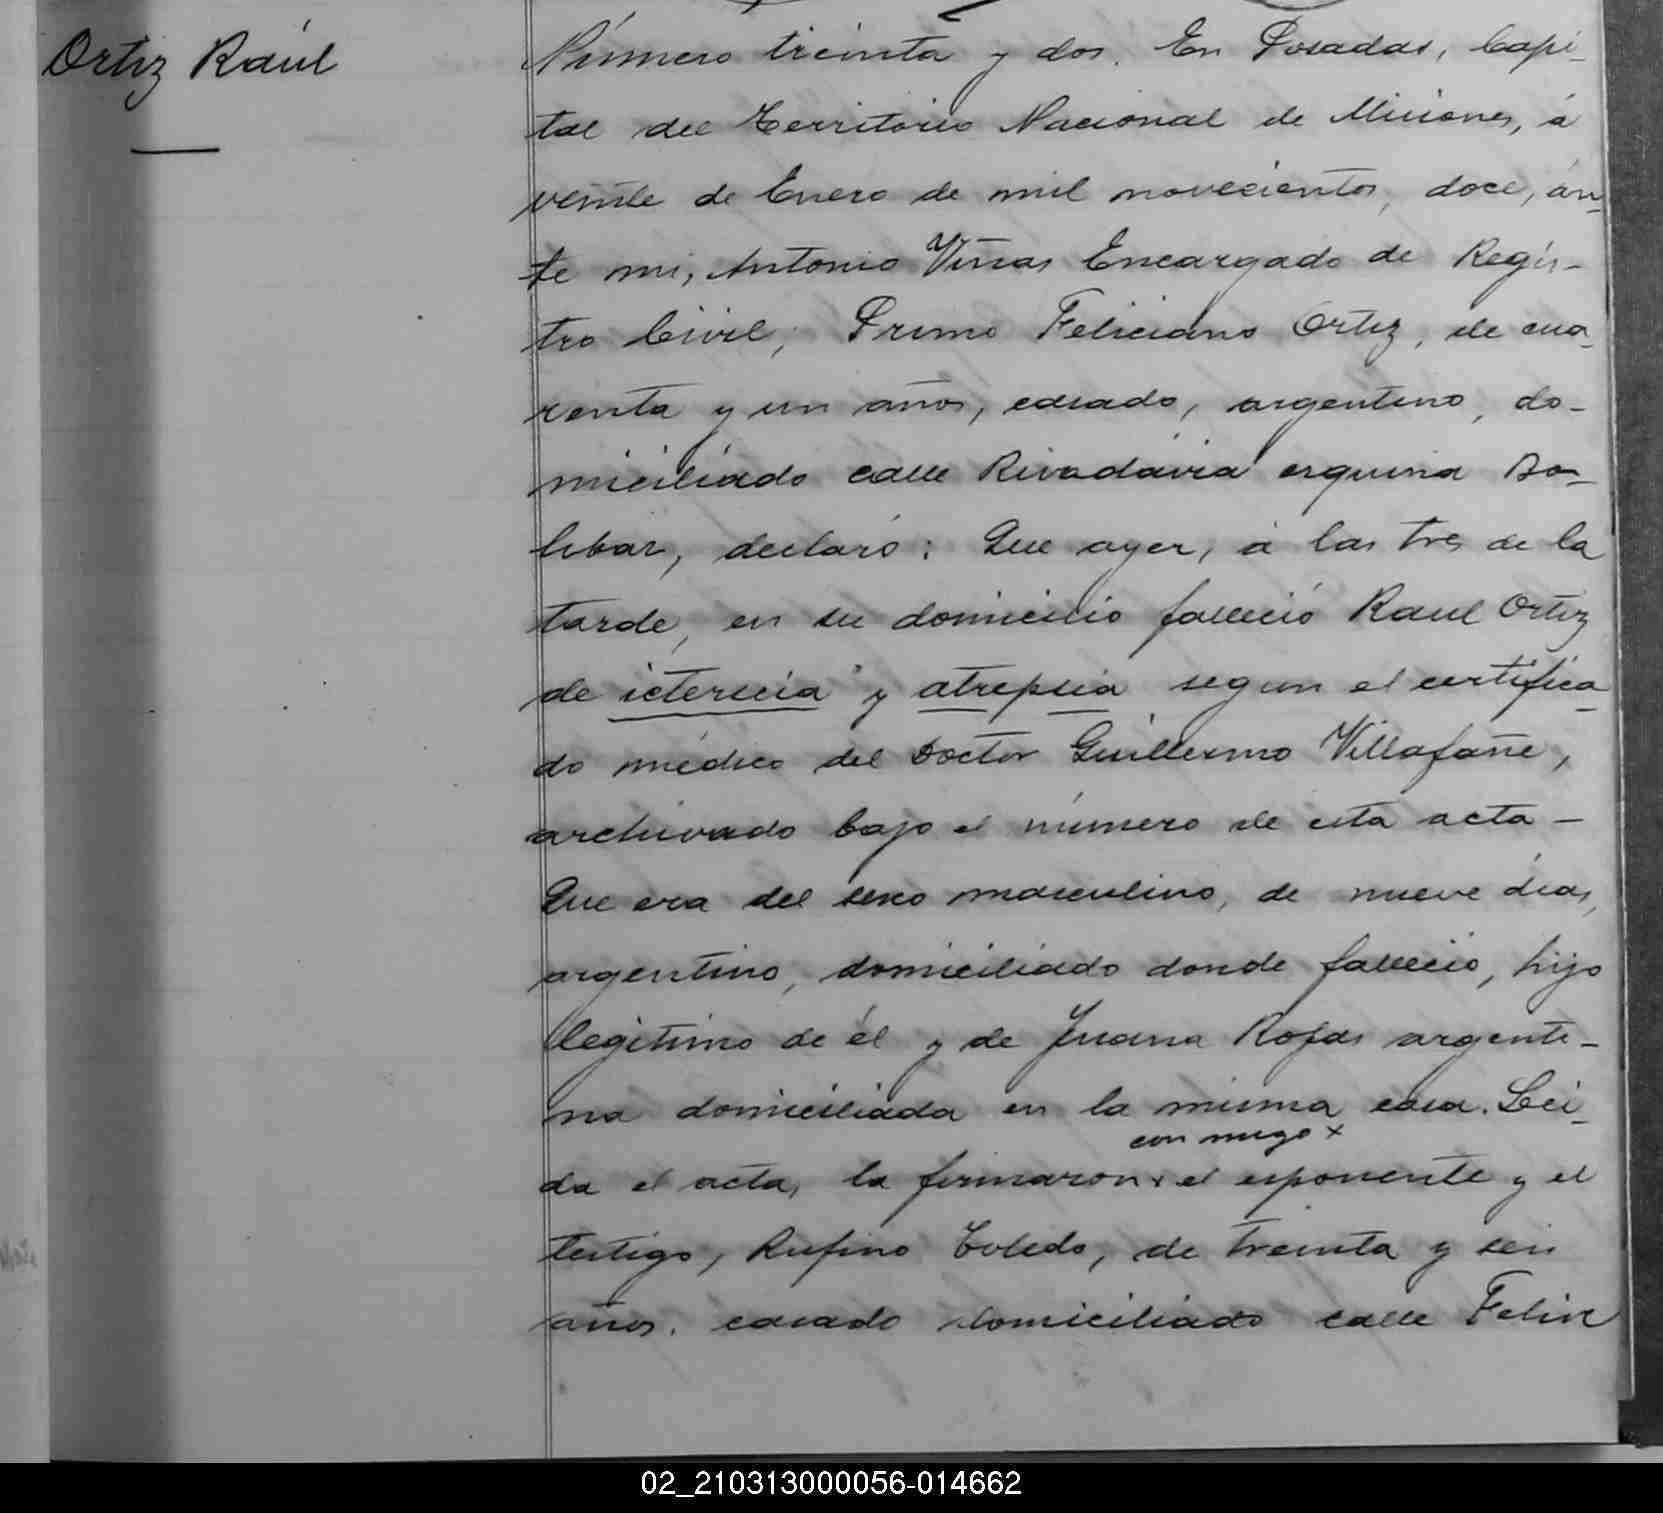 Ortiz Raúl
Número treinta y dos. En Posadas, Capi-
tal del Territorio Nacional de Misiones, á
veinte de Enero de mil novecientos, doce, án-
te mi, Antonio Viñas Encargado de Regis-
tro Civil; Primo Feliciano Ortiz, de cua-
renta y un años, casado, argentino, do-
miciliado calle Rivadavia esquina Bo-
libar, declaró: Que ayer, á las tres de la
tarde, en su domicilio falleció Raul Ortiz
de ictericia y atrepsia segun el certifica-
do médico del Doctor Guillermo Villafañe,
archivado bajo el número de esta acta -
Que era del sexo masculino, de nueve dias,
argentino, domiciliado donde falleció, hijo
legitimo de él y de Juana Rojas argenti-
na domiciliada en la misma casa. Lei-
con migo x
da el acta, la firmaron x el esponente y el
testigo, Rufino Toledo, de treinta y seis
años, casado domiciliado calle Felix
02_210313000056-014662